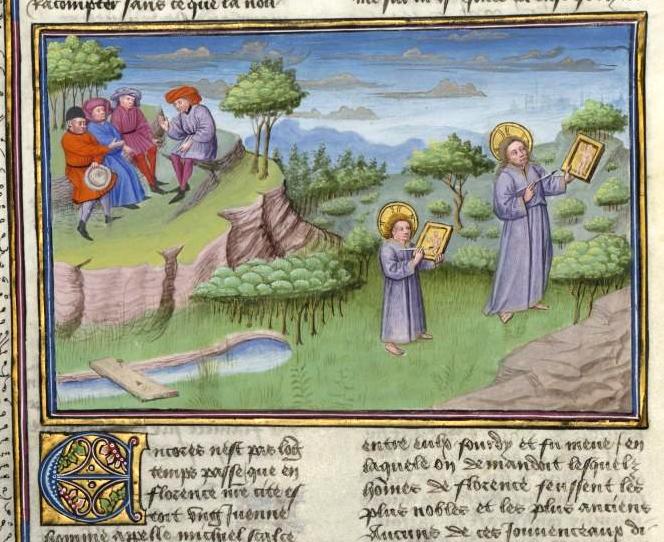 racompter sans ce que la nou
Encores nest pas lōg
temps passe que en
florence nr̄e cite es
toit vng Juenne
homme appelle michiel scalce
entre eulx sourdy et fu meue / en
laquele on demandoit lesquelz
hōmes de florence feussent les
plus nobles et les plus anciens
Aucuns de ces Jouuenceaux di